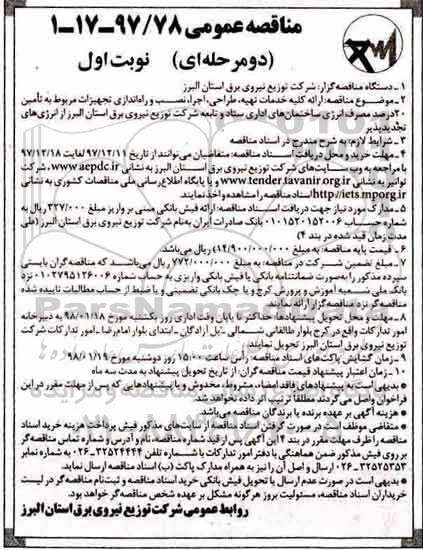 مناقصه عمومی ۹۷/۷۸-۱۷-۱
(دومرحله‌ای) نوبت اول
۱- دستگاه مناقصه‌گزار: شرکت توزیع نیروی برق استان البرز
۲- موضوع مناقصه: ارائه کلیه خدمات تهیه، طراحی، اجرا، نصب و راه‌اندازی تجهیزات مربوط به تأمین
۲۰درصد مصرف انرژی ساختمان‌های اداری ستاد و تابعه شرکت توزیع نیروی برق استان البرز از انرژی‌های
تجدیدپذیر
۳- شرایط لازم: به شرح مندرج در اسناد مناقصه
۴- مهلت خرید و محل دریافت اسناد مناقصه: متقاضیان می‌توانند از تاریخ ۹۷/۱۲/۱۱ لغایت ۹۷/۱۲/۱۸
با مراجعه به وب سایت‌های شرکت توزیع نیروی برق استان البرز به نشانی www.aepdc.ir، شرکت
توانیر به نشانی www.tender.tavanir.org.ir و یا پایگاه اطلاع‌رسانی ملی مناقصات کشوری به نشانی
http://iets.mporg.ir اسناد مناقصه را مشاهده و اخذ نمایند.
۵- مدارک مورد نیاز جهت دریافت اسناد مناقصه: ارائه فیش بانکی مبنی بر واریز مبلغ ۳۲۷/۰۰۰ ریال به
شماره حساب ۰۱۰۱۵۲۰۱۵۲۰۰۶ بانک صادرات ایران به‌نام شرکت توزیع نیروی برق استان البرز (طی
مدت زمان قید شده در بند ۴)
۶- قیمت پایه مناقصه: به مبلغ (۱۴/۹۰۰/۰۰۰/۰۰۰) ریال می‌باشد.
۷- مبلغ تضمین شرکت در مناقصه: به مبلغ ۷۷۲/۰۰۰/۰۰۰ ریال می‌باشد که مناقصه گران بایستی
سپرده مذکور را به‌صورت ضمانتنامه بانکی یا فیش بانکی واریزی به حساب شماره ۰۱۰۲۷۹۵۱۲۶۰۰۶ نزد
بانک ملی شعبه آموزش و پرورش کرج و یا چک بانکی تضمینی و یا ضبط از حساب مطالبات تاییده شده
مناقصه‌گر نزد مناقصه‌گزار ارائه نمایند.
۸- مهلت و محل تحویل پیشنهادها: حداکثر تا پایان وقت اداری روز یکشنبه مورخ ۹۸/۰۱/۱۸ به دبیرخانه
امور تدارکات واقع در کرج بلوار طالقانی شمالی - پل آزادگان - ابتدای بلوار امام‌رضا - امور تدارکات شرکت
توزیع نیروی برق استان البرز تحویل نمایند.
۹- زمان گشایش پاکت‌های اسناد مناقصه: رأس ساعت ۱۵:۰۰ روز دوشنبه مورخ ۹۸/۰۱/۱۹
۱۰- زمان اعتبار پیشنهاد قیمت مناقصه گران: از تاریخ تحویل پیشنهاد به مدت سه ماه
• بدیهی است به پیشنهادهای فاقد امضاء، مشروط، مخدوش و یا پیشنهادهایی که پس از مهلت مقرر در این
فراخوان واصل می‌گردند مطلقاً ترتیب اثر داده نخواهد شد.
• هزینه آگهی بر عهده برنده یا برندگان مناقصه می‌باشد.
• متقاضی موظف است در صورت گرفتن اسناد مناقصه از سایت‌های مذکور فیش پرداخت هزینه خرید اسناد
مناقصه را ظرف مهلت مقرر در بند ۴ این آگهی پس از قید شماره مناقصه، نام و آدرس و شماره تماس مناقصه‌گر
بر روی فیش مذکور ضمن هماهنگی با دفتر امور تدارکات با شماره تلفن ۳۲۵۲۴۴۴۴-۰۲۶ به شماره نمابر
۳۲۵۲۵۳۵۳-۰۲۶ ارسال و اصل آن را نیز به همراه مدارک پاکت (ب) اسناد مناقصه ارسال نماید.
• بدیهی است در صورت عدم ارسال یا تحویل فیش بانکی خرید اسناد مناقصه و ثبت‌نام مناقصه‌گر در لیست
خریداران اسناد مناقصه، مسئولیت بروز هرگونه مشکل بر عهده شخص مناقصه‌گر خواهد بود.
روابط عمومی شرکت توزیع نیروی برق استان البرز